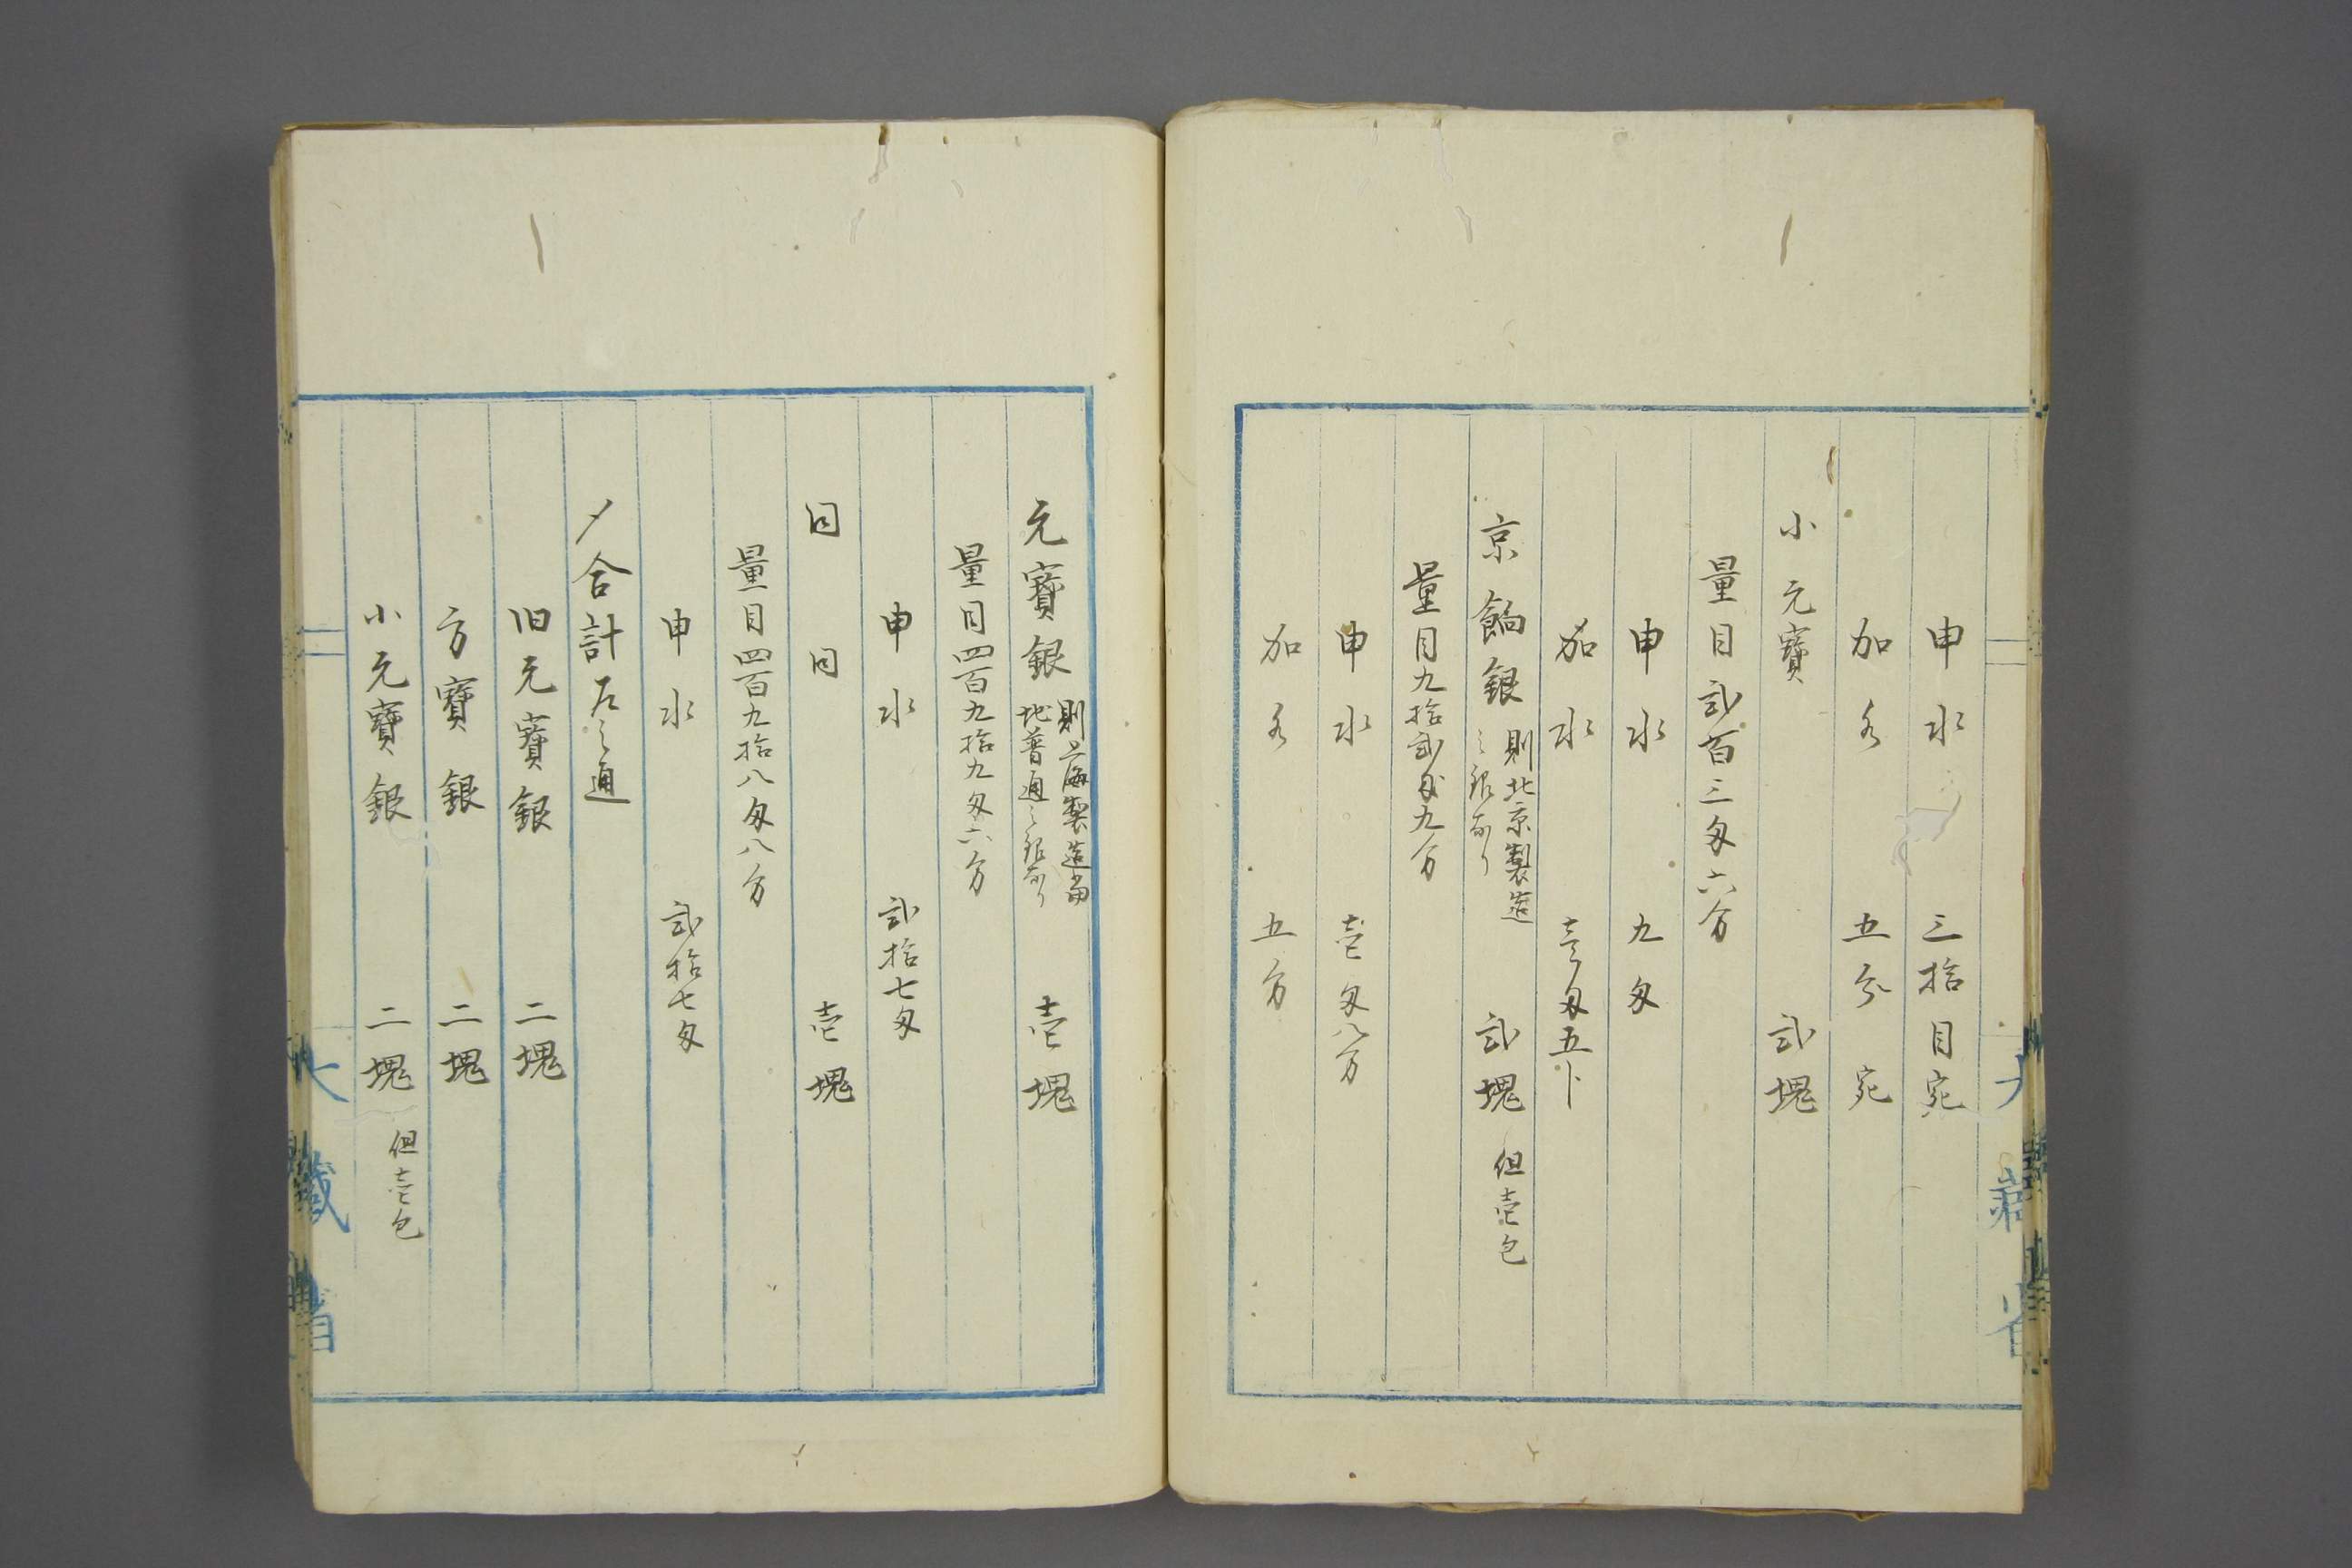 申水 三拾目宛
加水 五分宛
小元寳 弐塊
量目弐百三匁六分
申水 九匁
加水 壱匁五卜
京餡銀 則北京製造之銀なり 弐塊 但壱包
量目九拾弐匁九分
申水 壱匁八分
加水 五分
元寳銀 則上海製造当地普通之銀なり 壱塊
量目四百九拾九匁六分
申水 弐拾七匁
同同 壱塊
量目四百九拾八匁八分
申水 弐拾七匁
〆合計左之通
旧元寳銀 二塊
方寳銀 二塊
小元寳銀 二塊 但壱包
大藏省